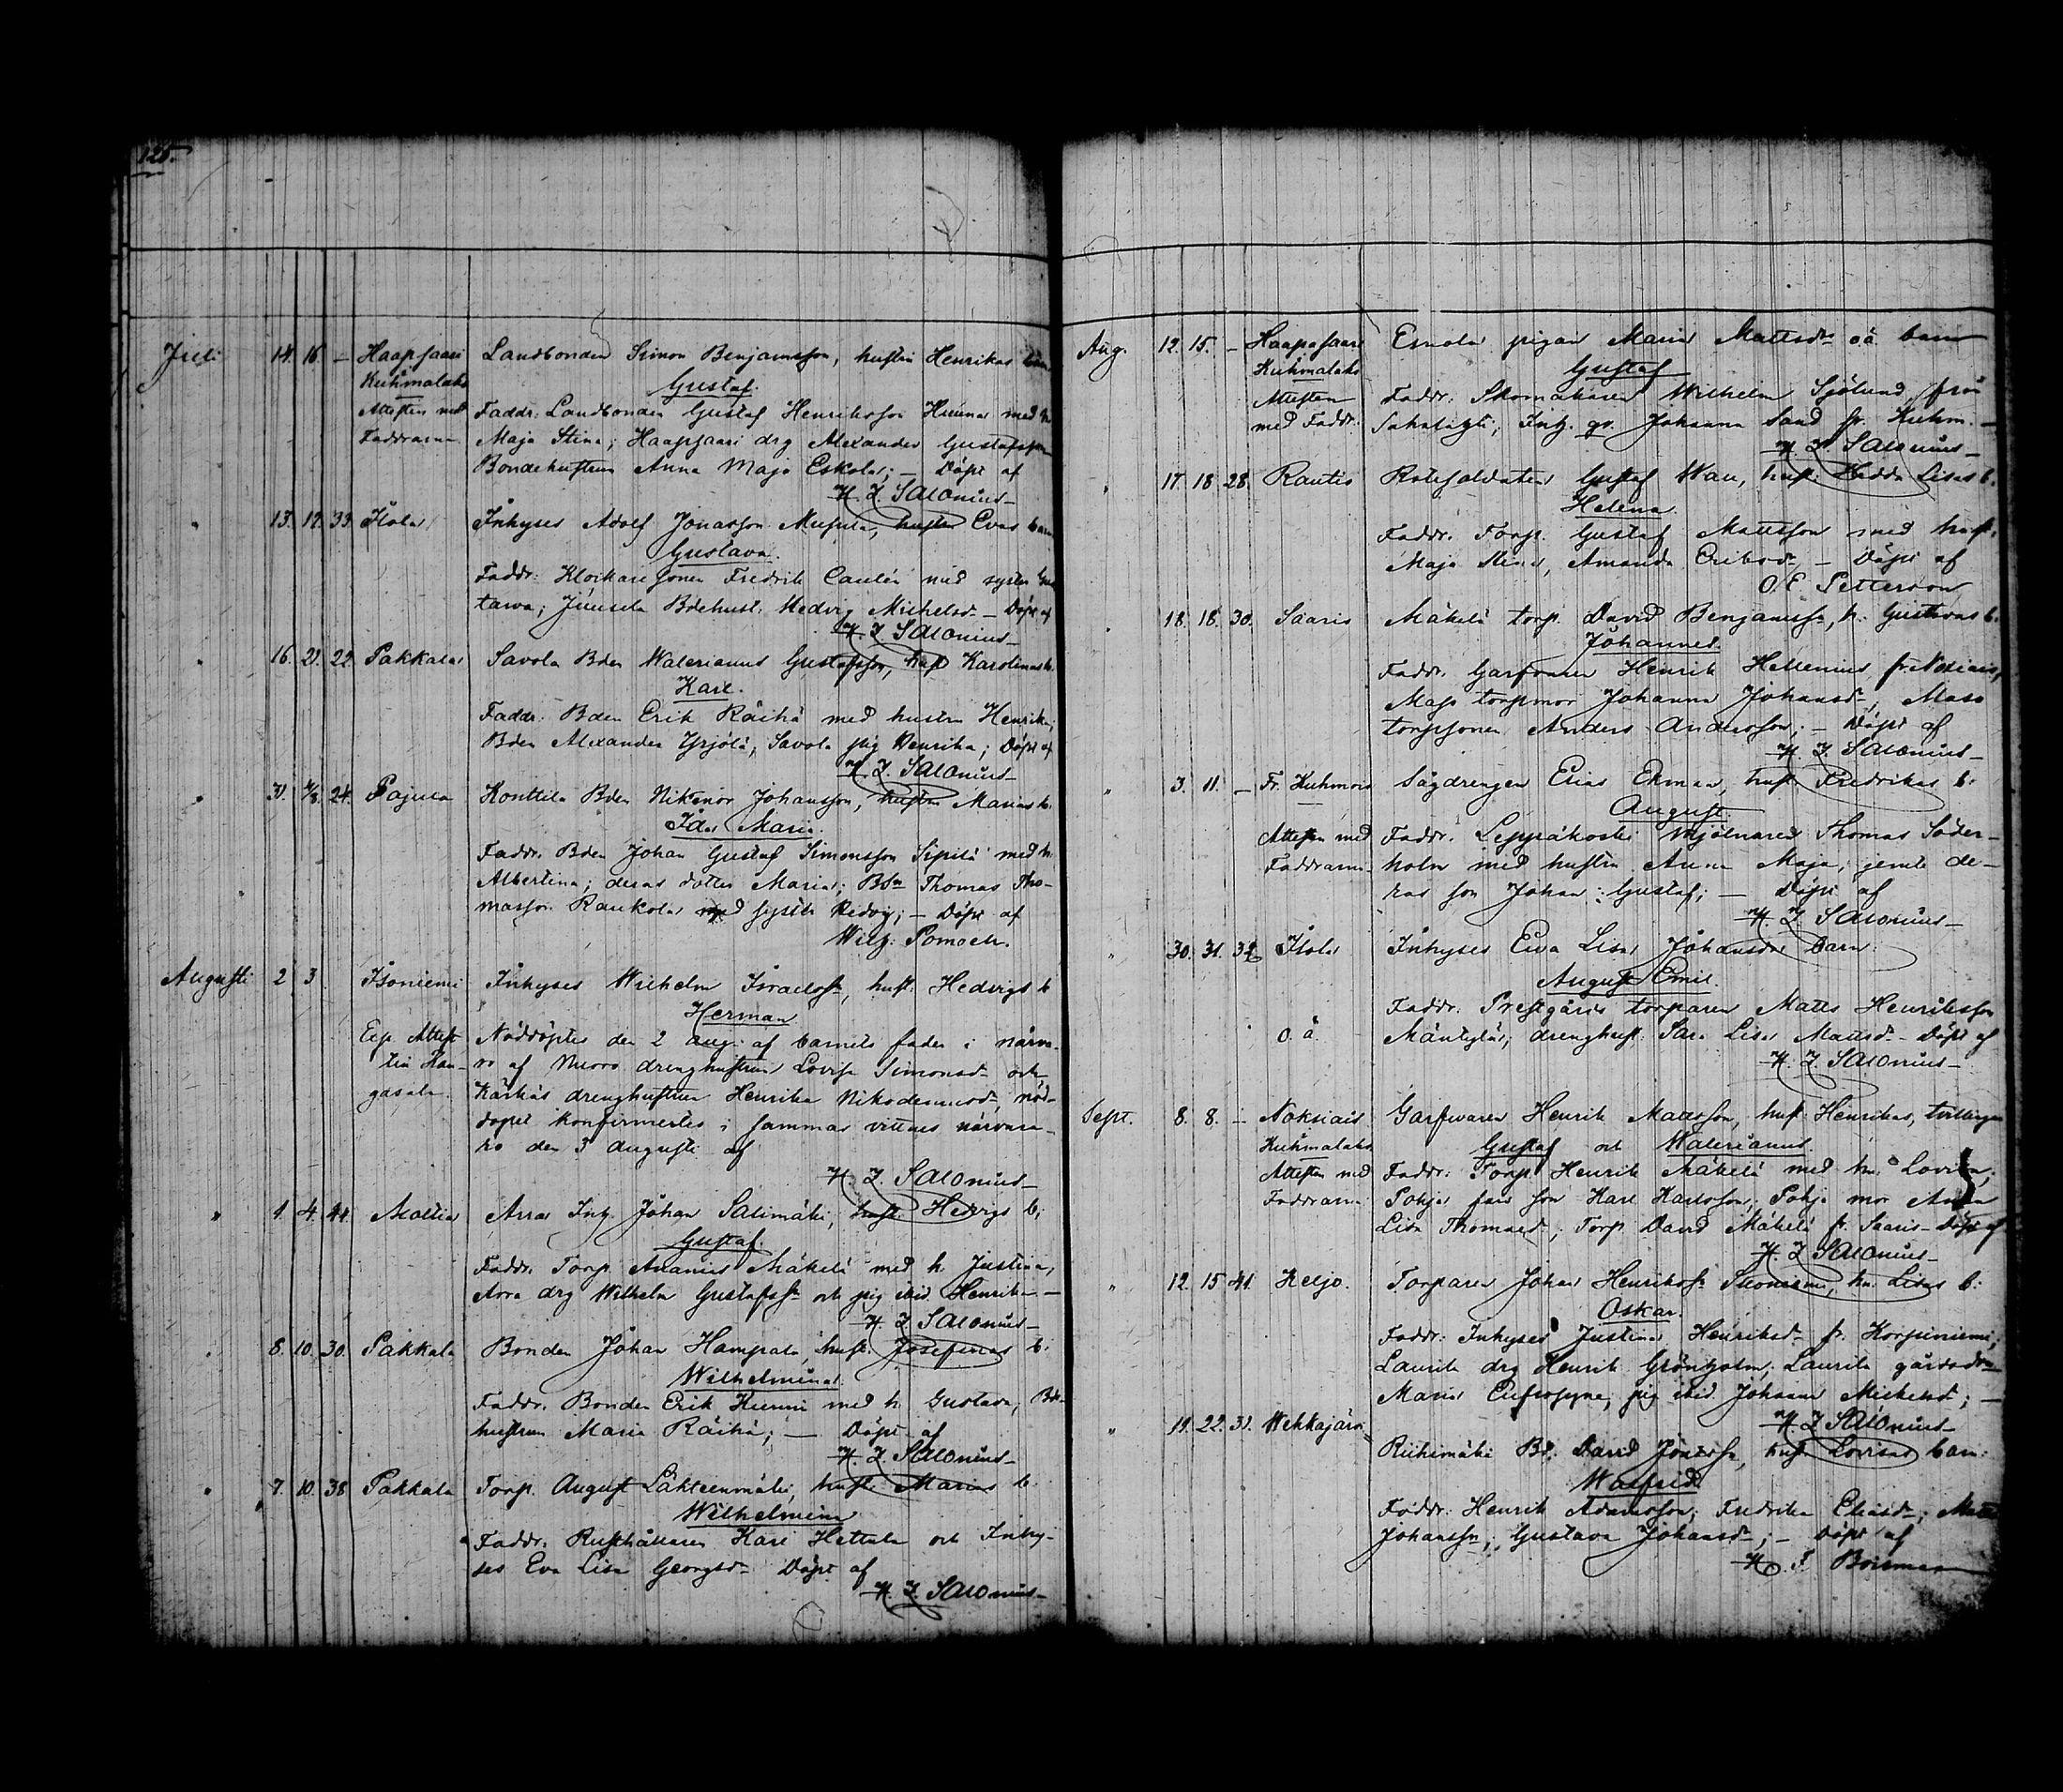 125.
Juli 14. 16. — Haapsaari Landbonden Simon Benjamsson, hustru Henrikas barn
Kuhmalaks Gustaf.
Attesten med Faddr: Landbonden Gustaf Henriksson med h.
Faddrarna Maja Stina; Haapsaari drg Alexander Gustafsson
Bondehustrun Anna Maja Eskola; — Döpt af
H. I. Salonius
" 13. 19. 33. Itola Inhyses Adolf Jonasson hustru Evas barn
Gustava.
Faddr: Klockaresonen Fredrik med syster Gus
tava; Bdehust. Hedvig Michelsd. — Döpt af
H. I. Salonius
" 16. 21. 22. Pakkala Savola Bden Walerianus Gustafsson, hust Karolinas b.
Karl.
Faddr: Bden Erik Räihä med hustru Henrika;
Bden Alexander Yrjölä, Savola pig Henrika; Döpt af
H. I. Salonius
" 31. 4/8. 24. Pajula Konttila Bden Nikanor Johansson, hustru Marias b.
Ida Maria.
Faddr. Bden Johan Gustaf Simonsson Sipilä med h.
Albertina; deras dotter Maria; Thomas Tho-
masson Raukola med syster Hedvig; — Döpt af
Wilh. Pomoell.
Augusti 2 3 Isoniemi Inhyses Wilhelm Israelss., hust. Hedvigs b
Herman
Attest Nöddöptes den 2 aug. af barnets fader i närva-
till Kan- ro af drenghustrun Lovisa Simonsd. och
gasala. Kärkäs drenghustrun Henrika Nikodemusd., nöd-
dopet konfirmertes i samma vittnes närvara-
ro den 3 Augusti af
H. I. Salonius
" 1. 4. 44. Arra Inh. Johan Salimäki, hust. Hedvigs b;
Gustaf.
Faddr. Torp. Ananias Mäkelä med h. Justina,
drg Wilhelm Gustafss. och pig ibid. Henrika —
H. I. Salonius
" 8. 10. 30. Pakkala Bonden Johan Hampala, hust. Josefinas b.
Wilhelmina
Faddr. Bonden Erik Kunni med h Gustava, Bde-
hustrun Maria Räihä; — Döpt af
H. I. Salonius
" 7. 10. 38 Pakkala Torp. August Läkteenmäki, hust. Marias b.
Wilhelmina
Faddr. Rusthållaren Karl Hettula och Inhy-
ses Eva Lisa Georgsd. Döpt af
H. I. Salonius
Aug. 12. 15. — Haapasaari pigan Maria Mattsdr. oä barn
Kuhmalaks Gustaf
Attesten Faddr: Skomakaren Wilhelm Sjölund från
med Faddr. Sahalahti; Inh. qv. Johanna Sand fr. Kuhm. —
H. I. Salonius
" 17. 18. 28. Rautio Rotesoldaten Gustaf Wau, hust. Hedda Lisas b.
Helena
Faddr. Torp. Gustaf Mattsson med hust.
Maja Stina, Amanda — Döpt af
O. E. Petterson
" 18. 18. 30. Saaris Mäkelä torp. David Benjamss., h. Gustavas b.
Johannes.
Faddr. Garfvaren Henrik Hellenius fr. Noksiais,
torpmor Johanna Johansd.,
torpsonen Anders Andersson; — Döpt af
H. I. Salonius
" 3. 11. — Fr. Kuhmois Sågdrengen Elias Ekman, hust. Fredrikas b.
August
Attesten med Faddr. Leppäkoski Mjölnaren Thomas Söder-
Faddrarna. holm med hustru Anna Maja; jemte de-
ras son Johan Gustaf; — Döpt af
H. I. Salonius
" 30. 31. 32 Itola Inhyses Eva Lisa Johansdr. barn
August Emil.
Faddr. Prestgårds torparen Matts Henriksson
o. ä. Mäntylä; drenghust. Sara Lisa Mattsd. Döpt af
H. I. Salonius
Sept. 8. 8. — Noksiais Garfwaren Henrik Mattsson, hust. Henrikas, tvillingar
Kuhmalaks Gustaf och Walerianus.
Attesten med Faddr: Torp. Henrik Mäkelä med h. Lovisa,
Faddrarna Pohja fars son Karl Karlsson; Pohja mor Anna
Lisa Thomasd.; Torp. David Mäkelä fr. Saaris — Döpt af
H. I. Salonius
" 12. 15 41. Keljo. Torparen Johan Henrikss. h. Lisas b.
Oskar.
Faddr: Inhyses Justina Henriksd. fr. Korpiniemi;
Laurila drg Henrik Grönholm; Laurila
Maria Eufrosyne; pig ibid. Johanna Michelsd.; —
H. I. Salonius
" 19. 22. 31. Wehkajärvi Riihimäki Bd. David hust. Lovisas barn.
Walfrid
Faddr: Henrik Adamsson; Fredrika Eliasd.;
Johanss.; Gustava Johansd.; — Döpt af
H. I. Boisman